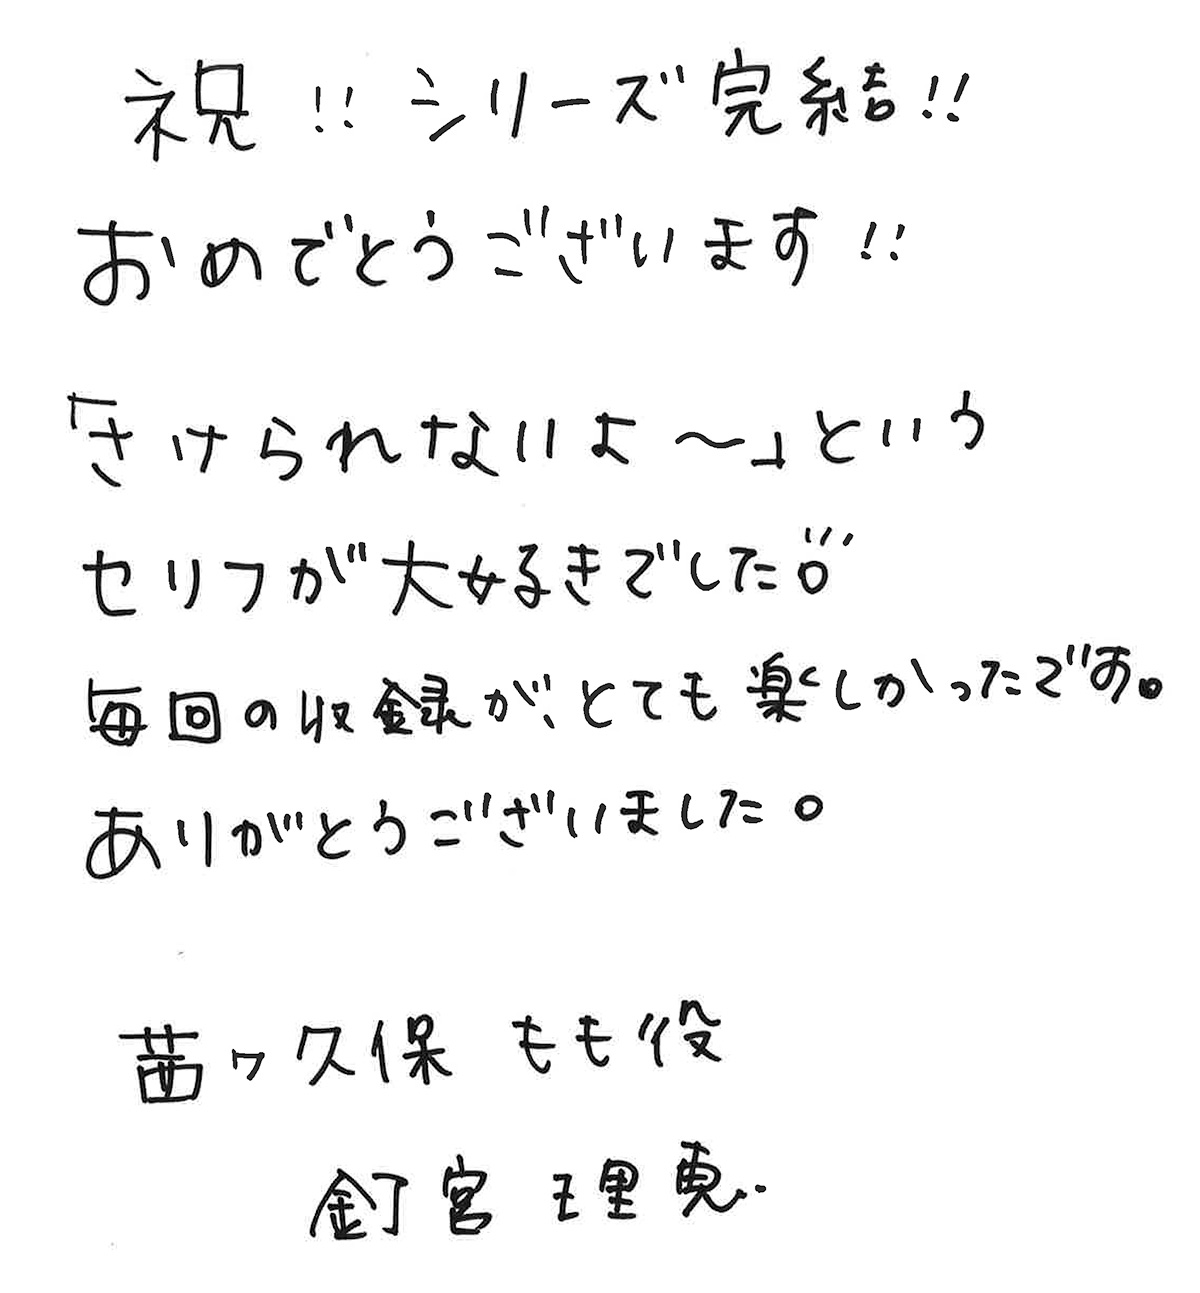 祝!! シリーズ完結!!
おめでとうございます!!
「さけられないよ〜」という
セリフが大好きでした
毎回の収録が、とても楽しかったです。
ありがとうございました。
茜ヶ久保 もも役
釘宮 理恵